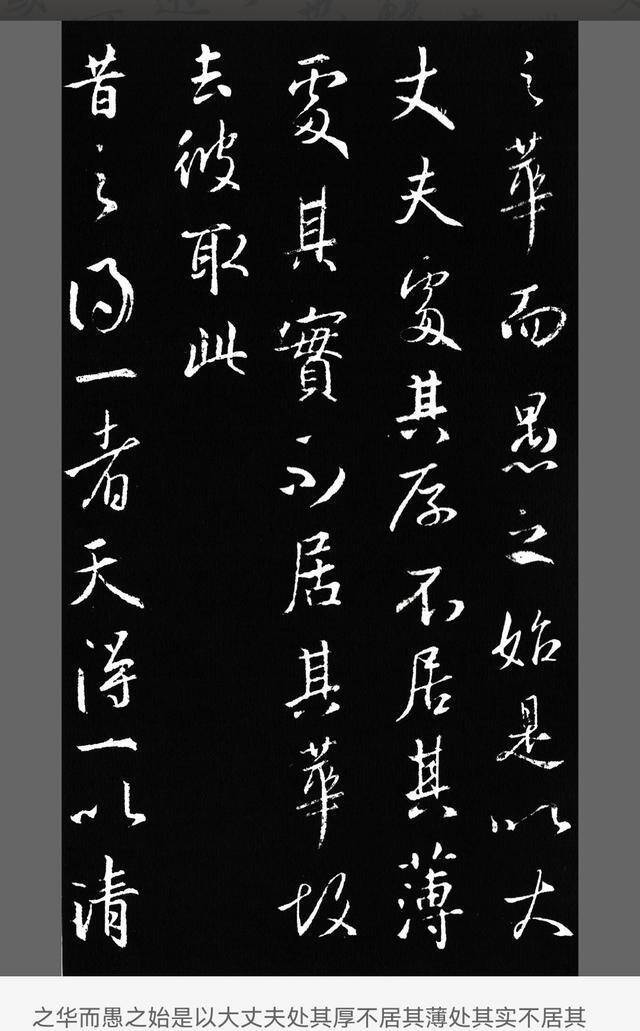 之華而愚之始是以大
丈夫處其厚不居其薄
處其實不居其華故
去彼取此
昔之得一者天得一以清
之华而愚之始是以大丈夫处其厚不居其薄处其实不居其